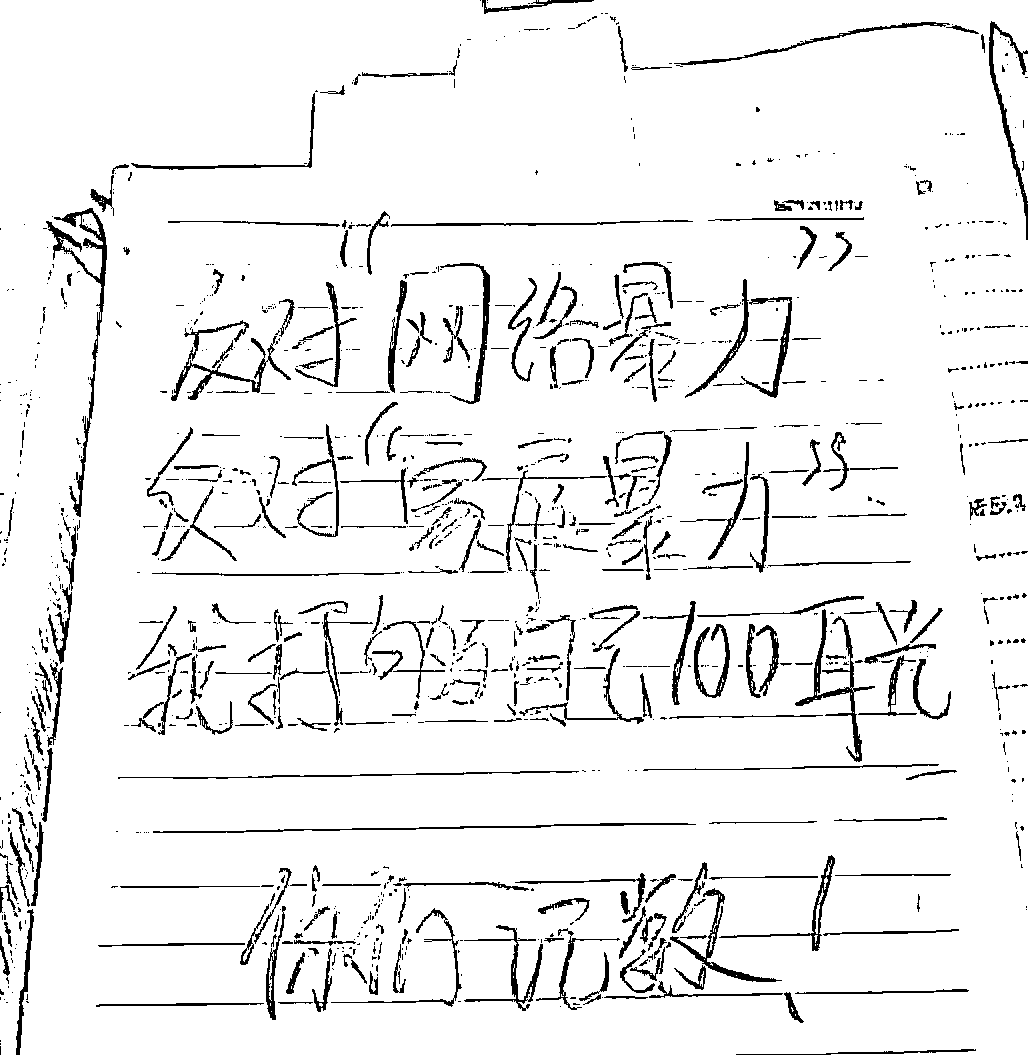 反对“网络暴力”
反对“家庭暴力”
我打 自己100耳光
你们记数！